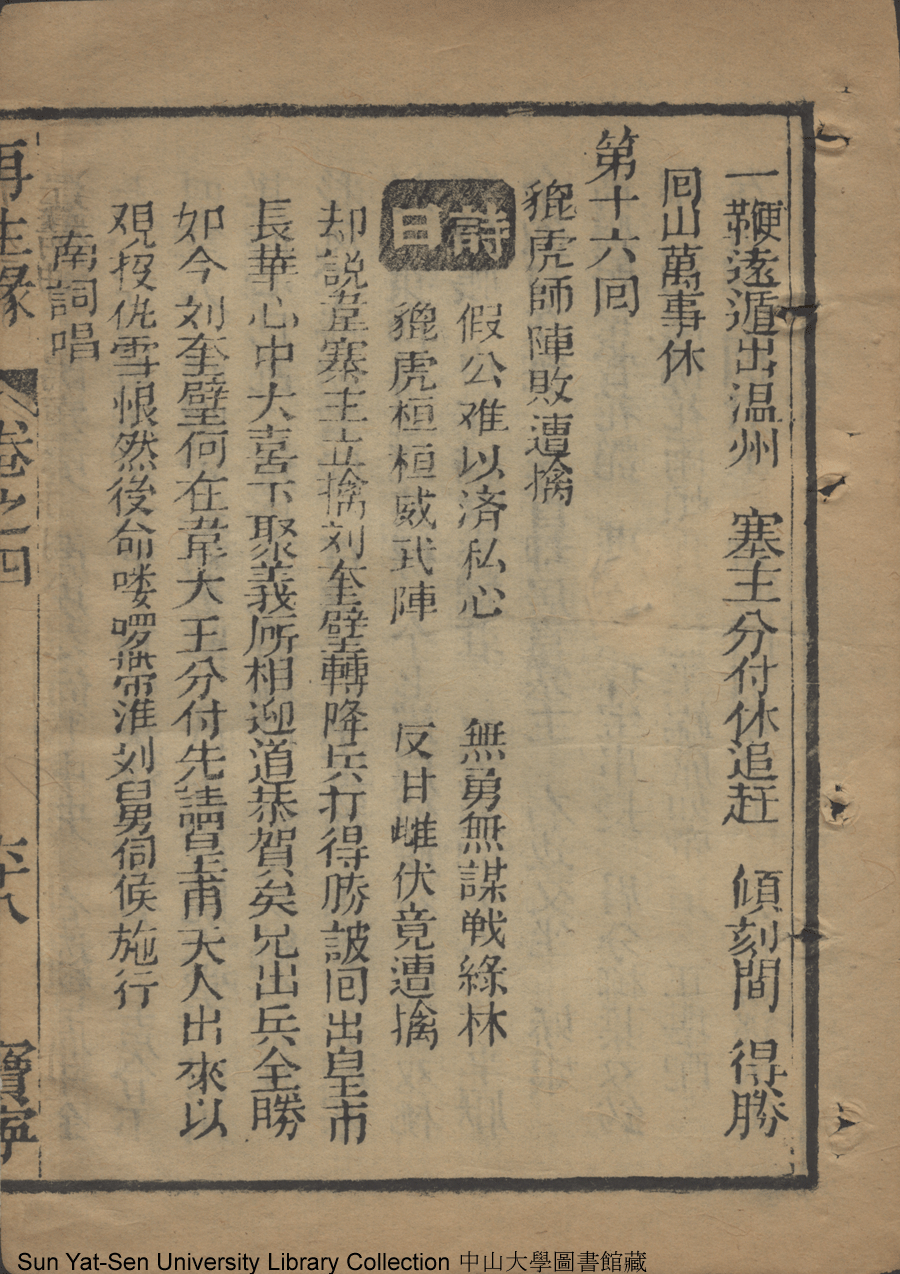 一鞭遠遁出温州　塞主分付休追赶　傾刻間　得勝
囘山萬事休
第十六囘
貔虎師陣敗遭擒
詩曰
假公难以済私心　無勇無謀戦綠林
貔虎桓桓威武陣　反甘雌伏竟遭擒
却説韋寨主立擒刘奎璧轉降兵打得勝皷囘出皇甫
長華心中大喜下聚義所相迎道恭賀矣兄出兵全勝
如今刘奎璧何在韋大王分付先請皇甫夫人出來以
覌投仇雪恨然後命喽啰帶淮刘舅伺候施行
南詞唱
再生緣　卷之四　六十八　寶寧
Sun Yat-Sen University Library Collection 中山大學圖書館藏